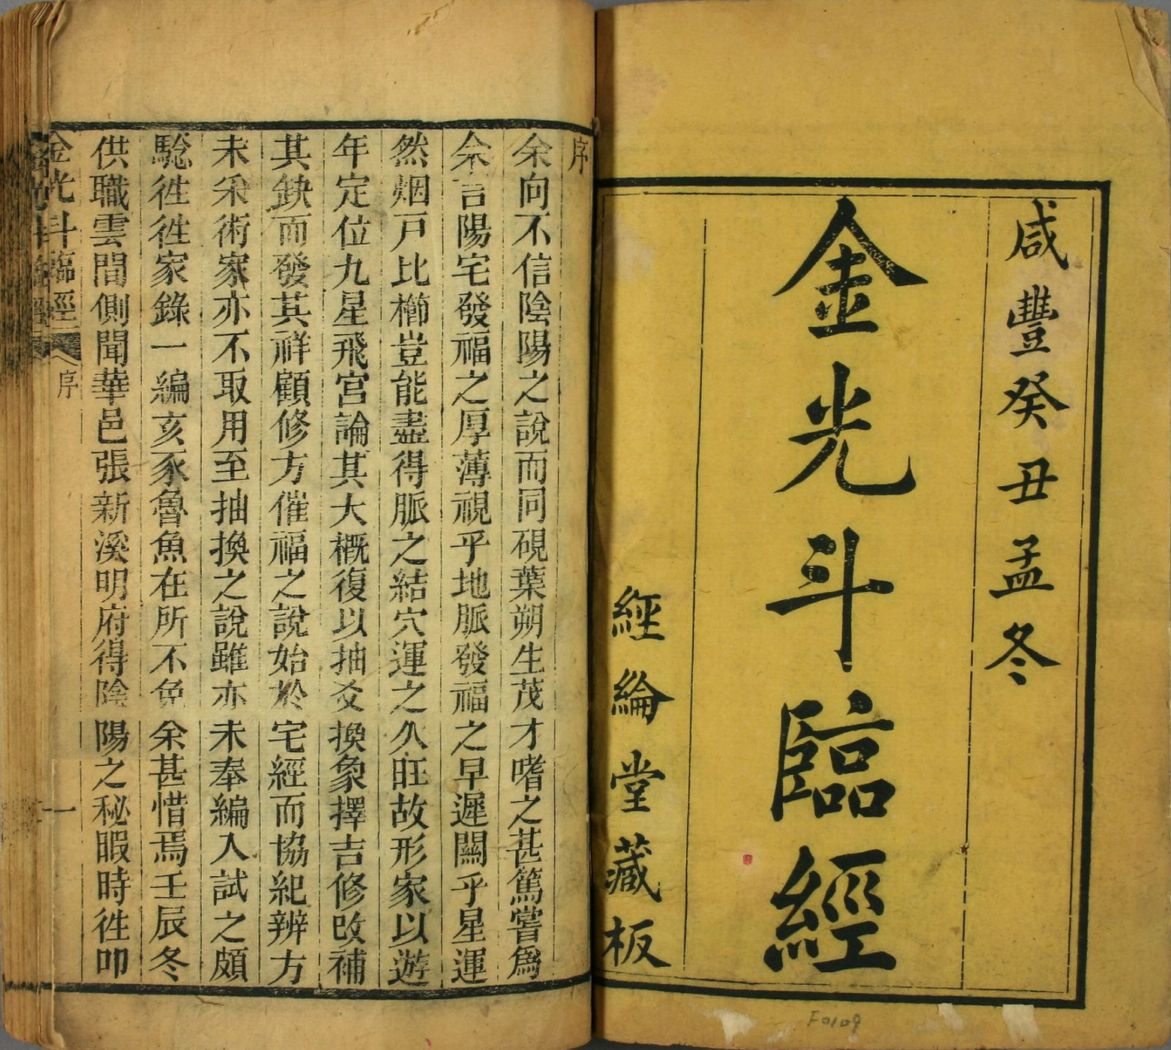 咸豐癸丑孟冬
金光斗臨經
經綸堂藏板
F0109
序
余向不信陰陽之說而同硯葉朔生茂才嗜之甚篤嘗爲
余言陽宅發福之厚薄視乎地脈發福之早遲關乎星運
然烟戸比櫛豈能盡得脈之結穴運之久旺故形家以遊
年定位九星飛宮論其大概復以抽爻換象擇吉修改補
其缺而發其祥顧修方催福之說始於宅經而協紀辨方
未采術家亦不取用至抽換之說雖亦未奉編入試之頗
騐徃徃家錄一編亥豕魯魚在所不免余甚惜焉壬辰冬
供職雲間側聞華邑張新溪明府得陰陽之秘暇時徃叩
金光斗臨經
序
一